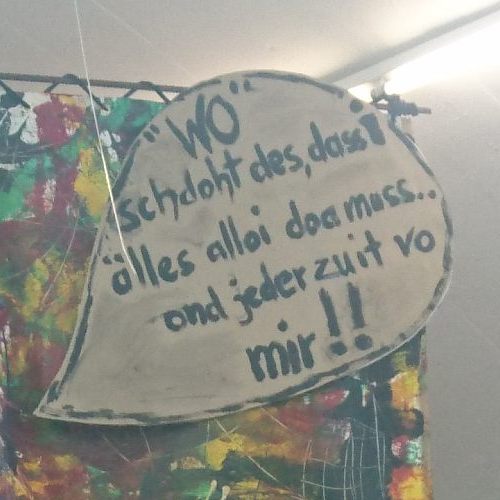 "WO"
schdoht des, dass i
älles alloi doa muss..
ond jeder zuit vo
mir!!